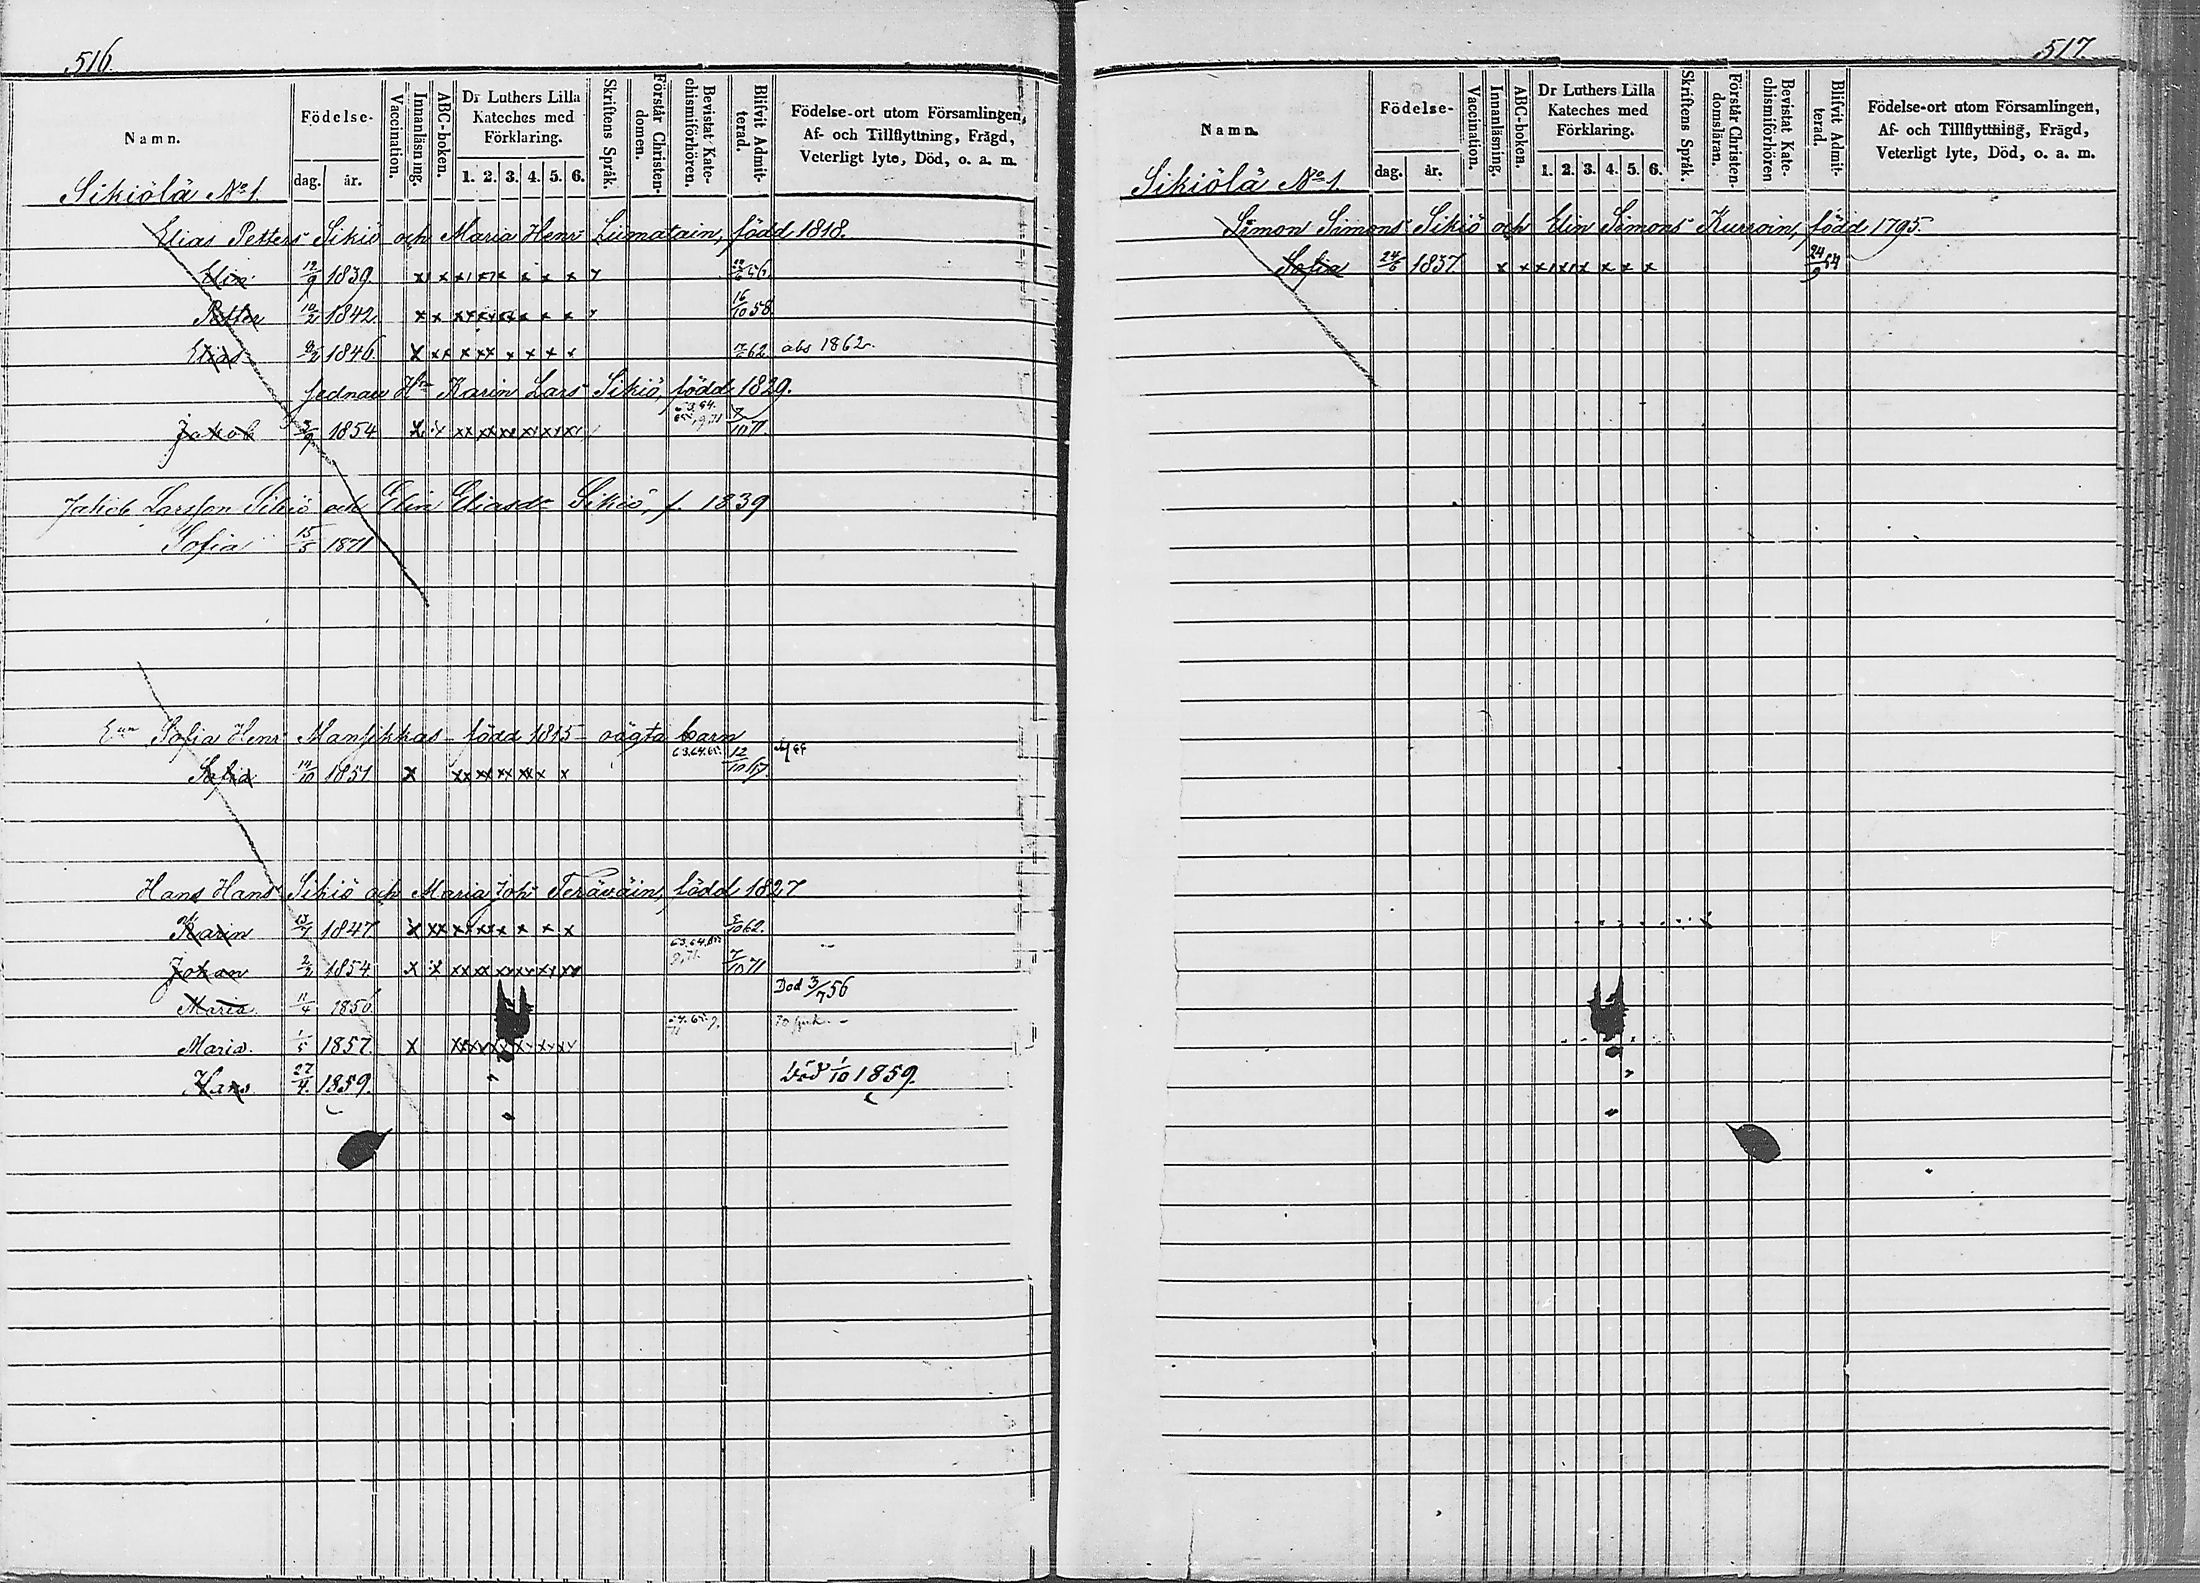 516.
Namn. Födelse- dag. år. Vaccination. Innanläsning. ABC-boken. Dr Luthers Lilla Kateches med Förklaring. 1. 2. 3. 4. 5. 6. Skriftens Språk. Förstår Christen-domen. Bevistat Kate-chismiförhören. Blifvit Admit-terad. Födelse-ort utom Församlingen, Af- och Tillflyttning, Frägd, Veterligt lyte, Död, o. a. m.
Sikiölä No 1.
Elias Petters Sikiö och Maria Henr Liimatain, född 1818.
Elin 1839. x x x x x x x x
Petter 1842. x x x x x x x x 16/10 58.
Elias 1846. x x x x x x x x x x 62 abs 1862.
Karin Lars Sikiö, född 1829.
Jakob 1854 x x xx xx xx xx xx xx 7/10 71.
Jakob Larsson Sikiö och Elin Eliasdr Sikiö, f. 1839
Sofia 15/5 1871
Sofia Henr Mansikkas född 1815 oägta barn
Sofia 1851. x xx xx xx xx x x 63.64.65. 12/10 67
Hans Hans Sikiö och Maria Joh Teräväin, född 1827
Karin 1847 x xx xx xx x x x x 62.
Johan 1854. x x xx xx xx xx xx xx 7/10 71
Maria 11/4 1856 Död 3/7 56
Maria. 1/5 1857. x xx xx xx xx xx xx
Hans 27/4. 1859. Död 1/10 1859.
517.
Namn. Födelse- dag. år. Vaccination. Innanläsning. ABC-boken. Dr Luthers Lilla Kateches med Förklaring. 1. 2. 3. 4. 5. 6. Skriftens Språk. Förstår Christen-domsläran. Bevistat Kate-chismiförhören Blifvit Admit-terad. Födelse-ort utom Församlingen, Af- och Tillflyttning, Frägd, Veterligt lyte, Död, o. a. m.
Sikiölä No 1.
Simon Simons Sikiö och Elin Simons Kurroin, född 1795.
Sofia 24/6 1837 x x x x x x x x 24/9 54